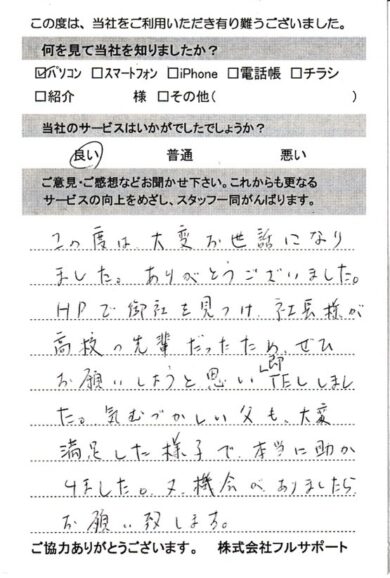 この度は、当社をご利用いただき有り難うございました。
何を見て当社を知りましたか？
☑パソコン □スマートフォン □iPhone □電話帳 □チラシ
□紹介　　　様 □その他(　　　　　　　　)
当社のサービスはいかがでしたでしょうか？
良い　　普通　　悪い
ご意見・ご感想などお聞かせ下さい。これからも更なる
サービスの向上をめざし、スタッフ一同がんばります。
この度は大変お世話になり
ました。ありがとうございました。
HPで御社を見つけ、社長様が
高校の先輩だったため、ぜひ
お願いしようと思い即TELしまし
た。気むづかしい父も、大変
満足した様子で、本当に助か
りました。又、機会がありましたら
お願い致します。
ご協力ありがとうございます。　株式会社フルサポート